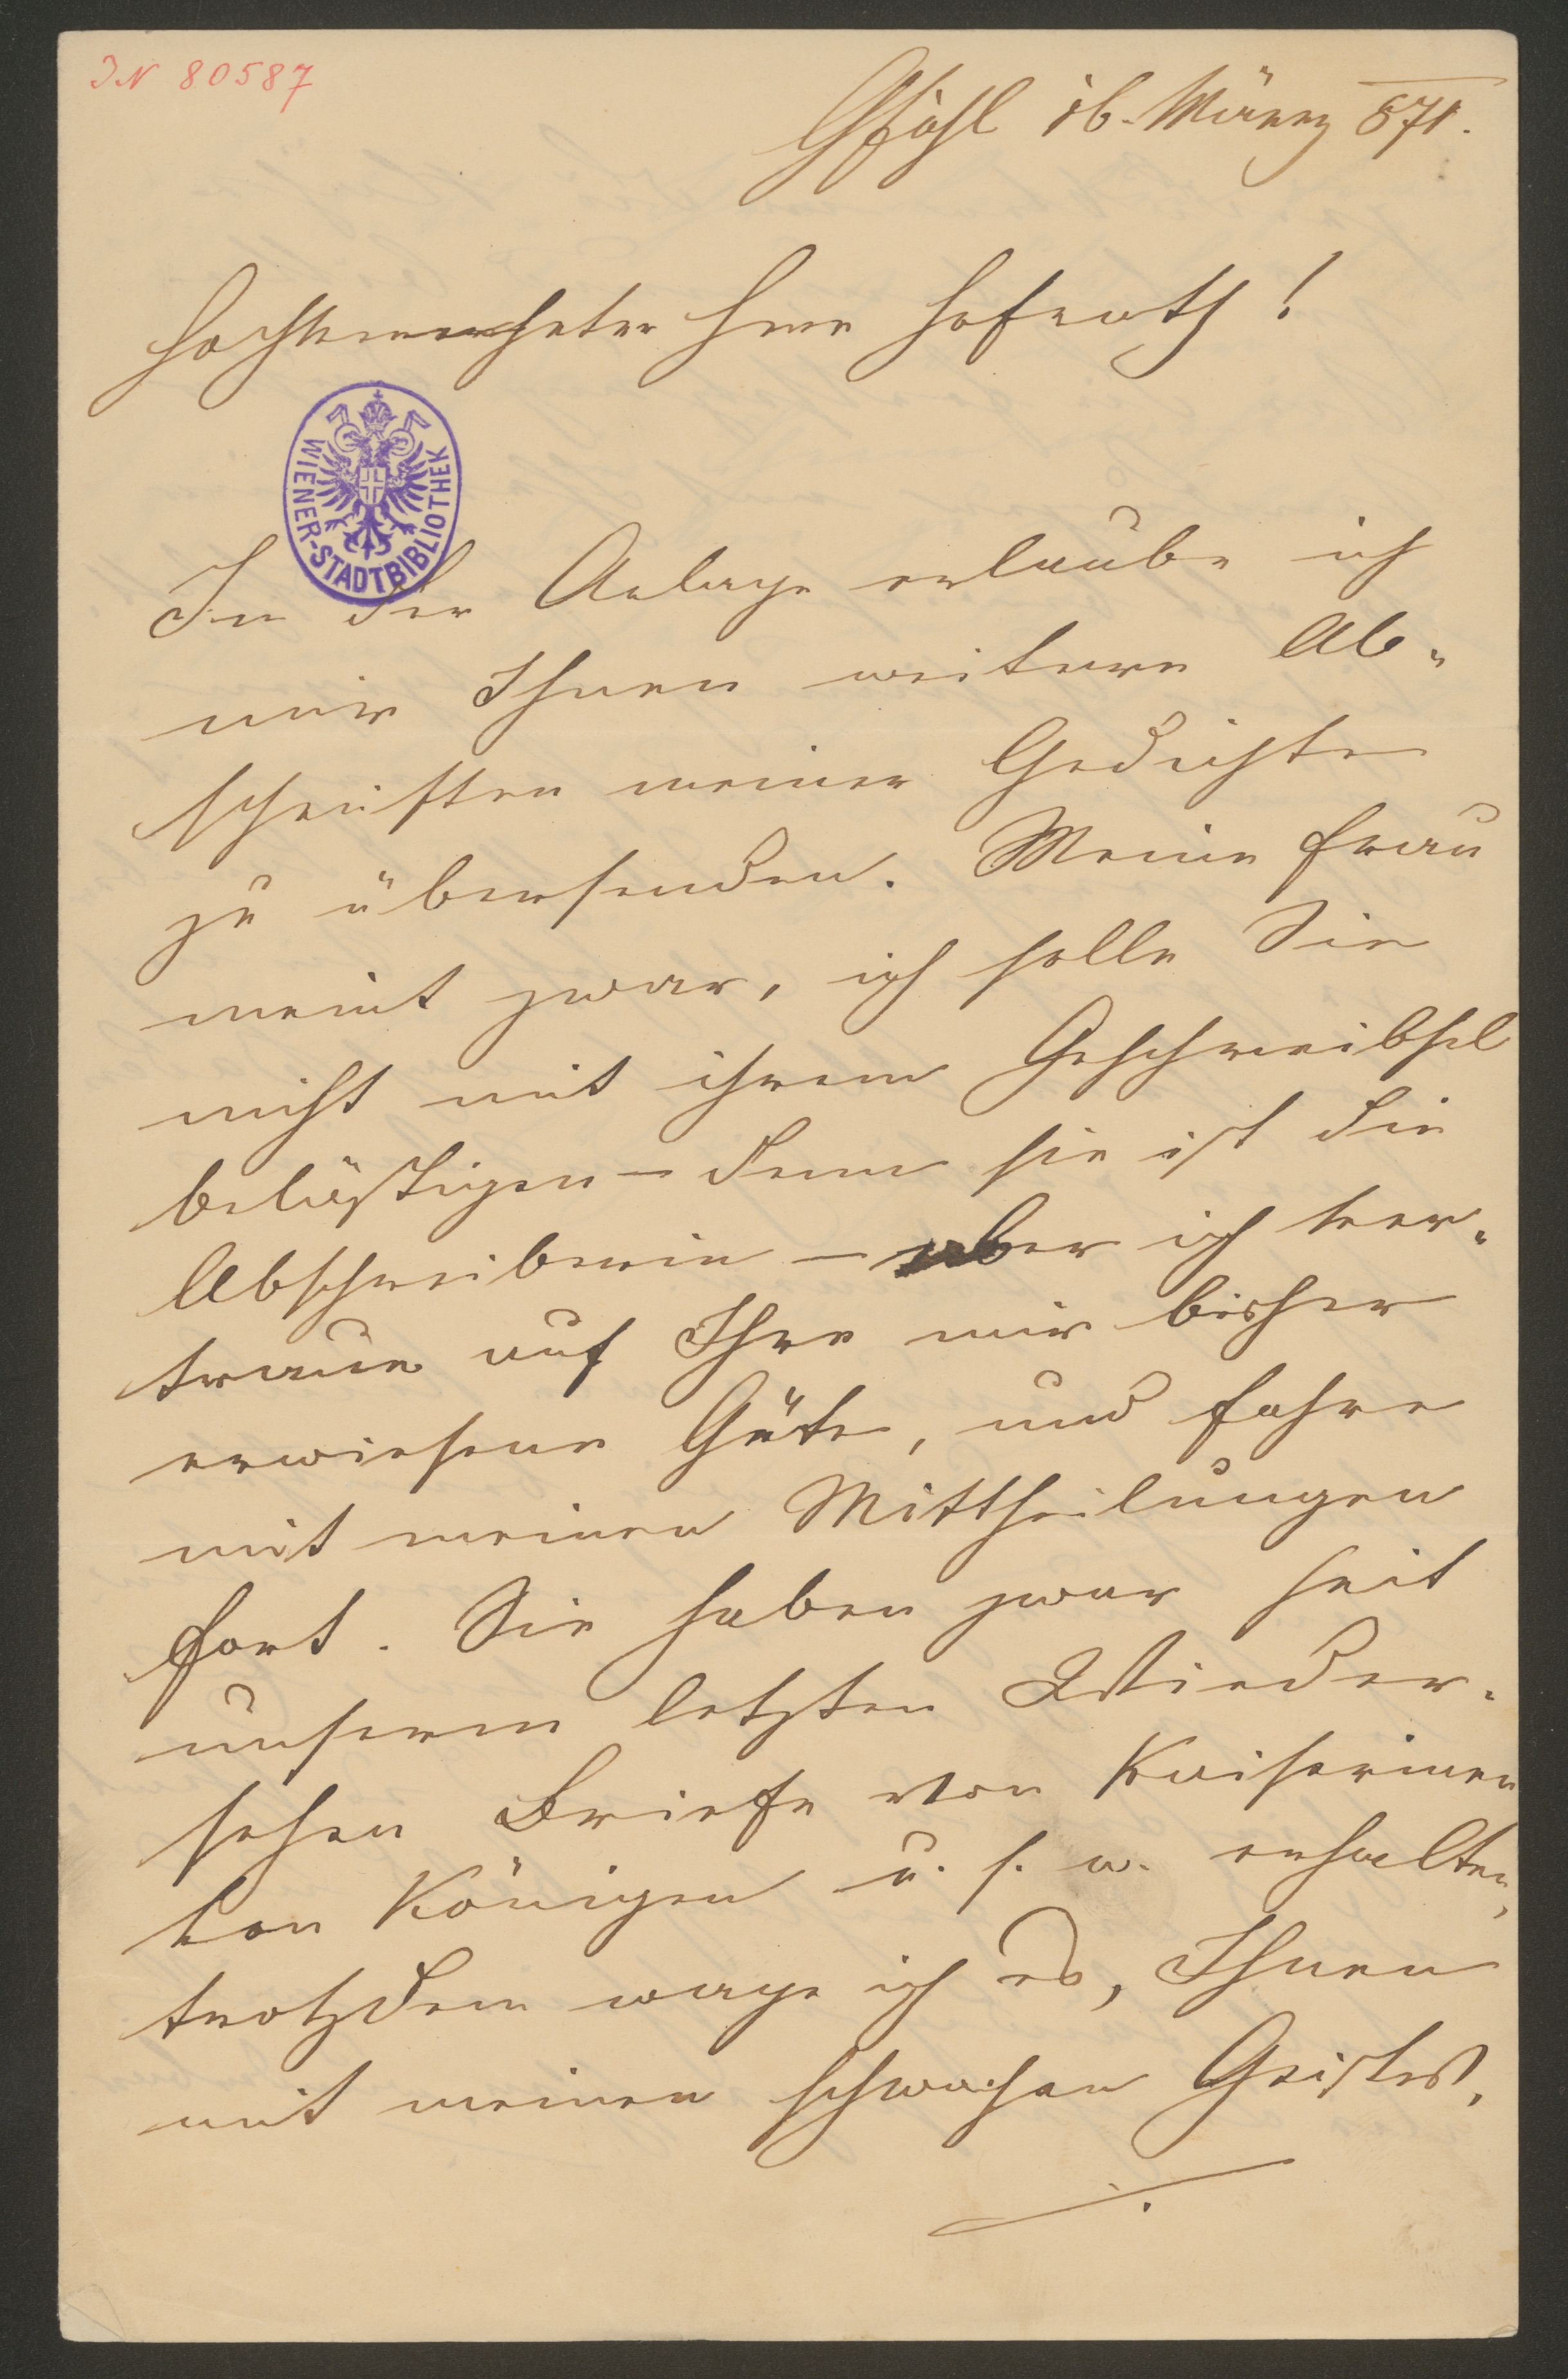 IN 80587
Gföhl 16. März 871.
Hochverehrter Herr Hofrath!
WIENER-STADTBIBLIOTHEK
In der Anlage erlaube ich
mir Ihnen weitere Ab-
schriften meiner Gedichte
zu übersenden. Meine Frau
meint zwar, ich solle Sie
nicht mit ihrem Geschreibsel
belästigen – denn sie ist die
Abschreiberin – aber ich ver-
traue auf Ihre mir bisher
erwiesene Güte, und fahre
mit meinen Mittheilungen
fort. Sie haben zwar seit
unserem letzten Wieder-
sehen Briefe von Kaiserinen
von Königen u. s. w. erhalten,
trotzdem wage ich es, Ihnen
mit meinen schwachen Geistes-